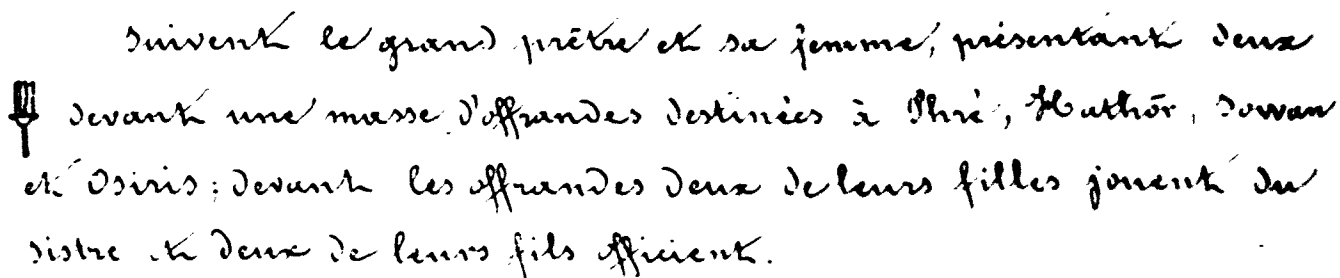 suivent le grand prêtre et sa femme, présentant deux
devant une masse d'offrandes destinées à Phré, Hathôr, Sowan
et Osiris; devant les offrandes deux de leurs filles jouent du
sistre et deux de leurs fils officient.